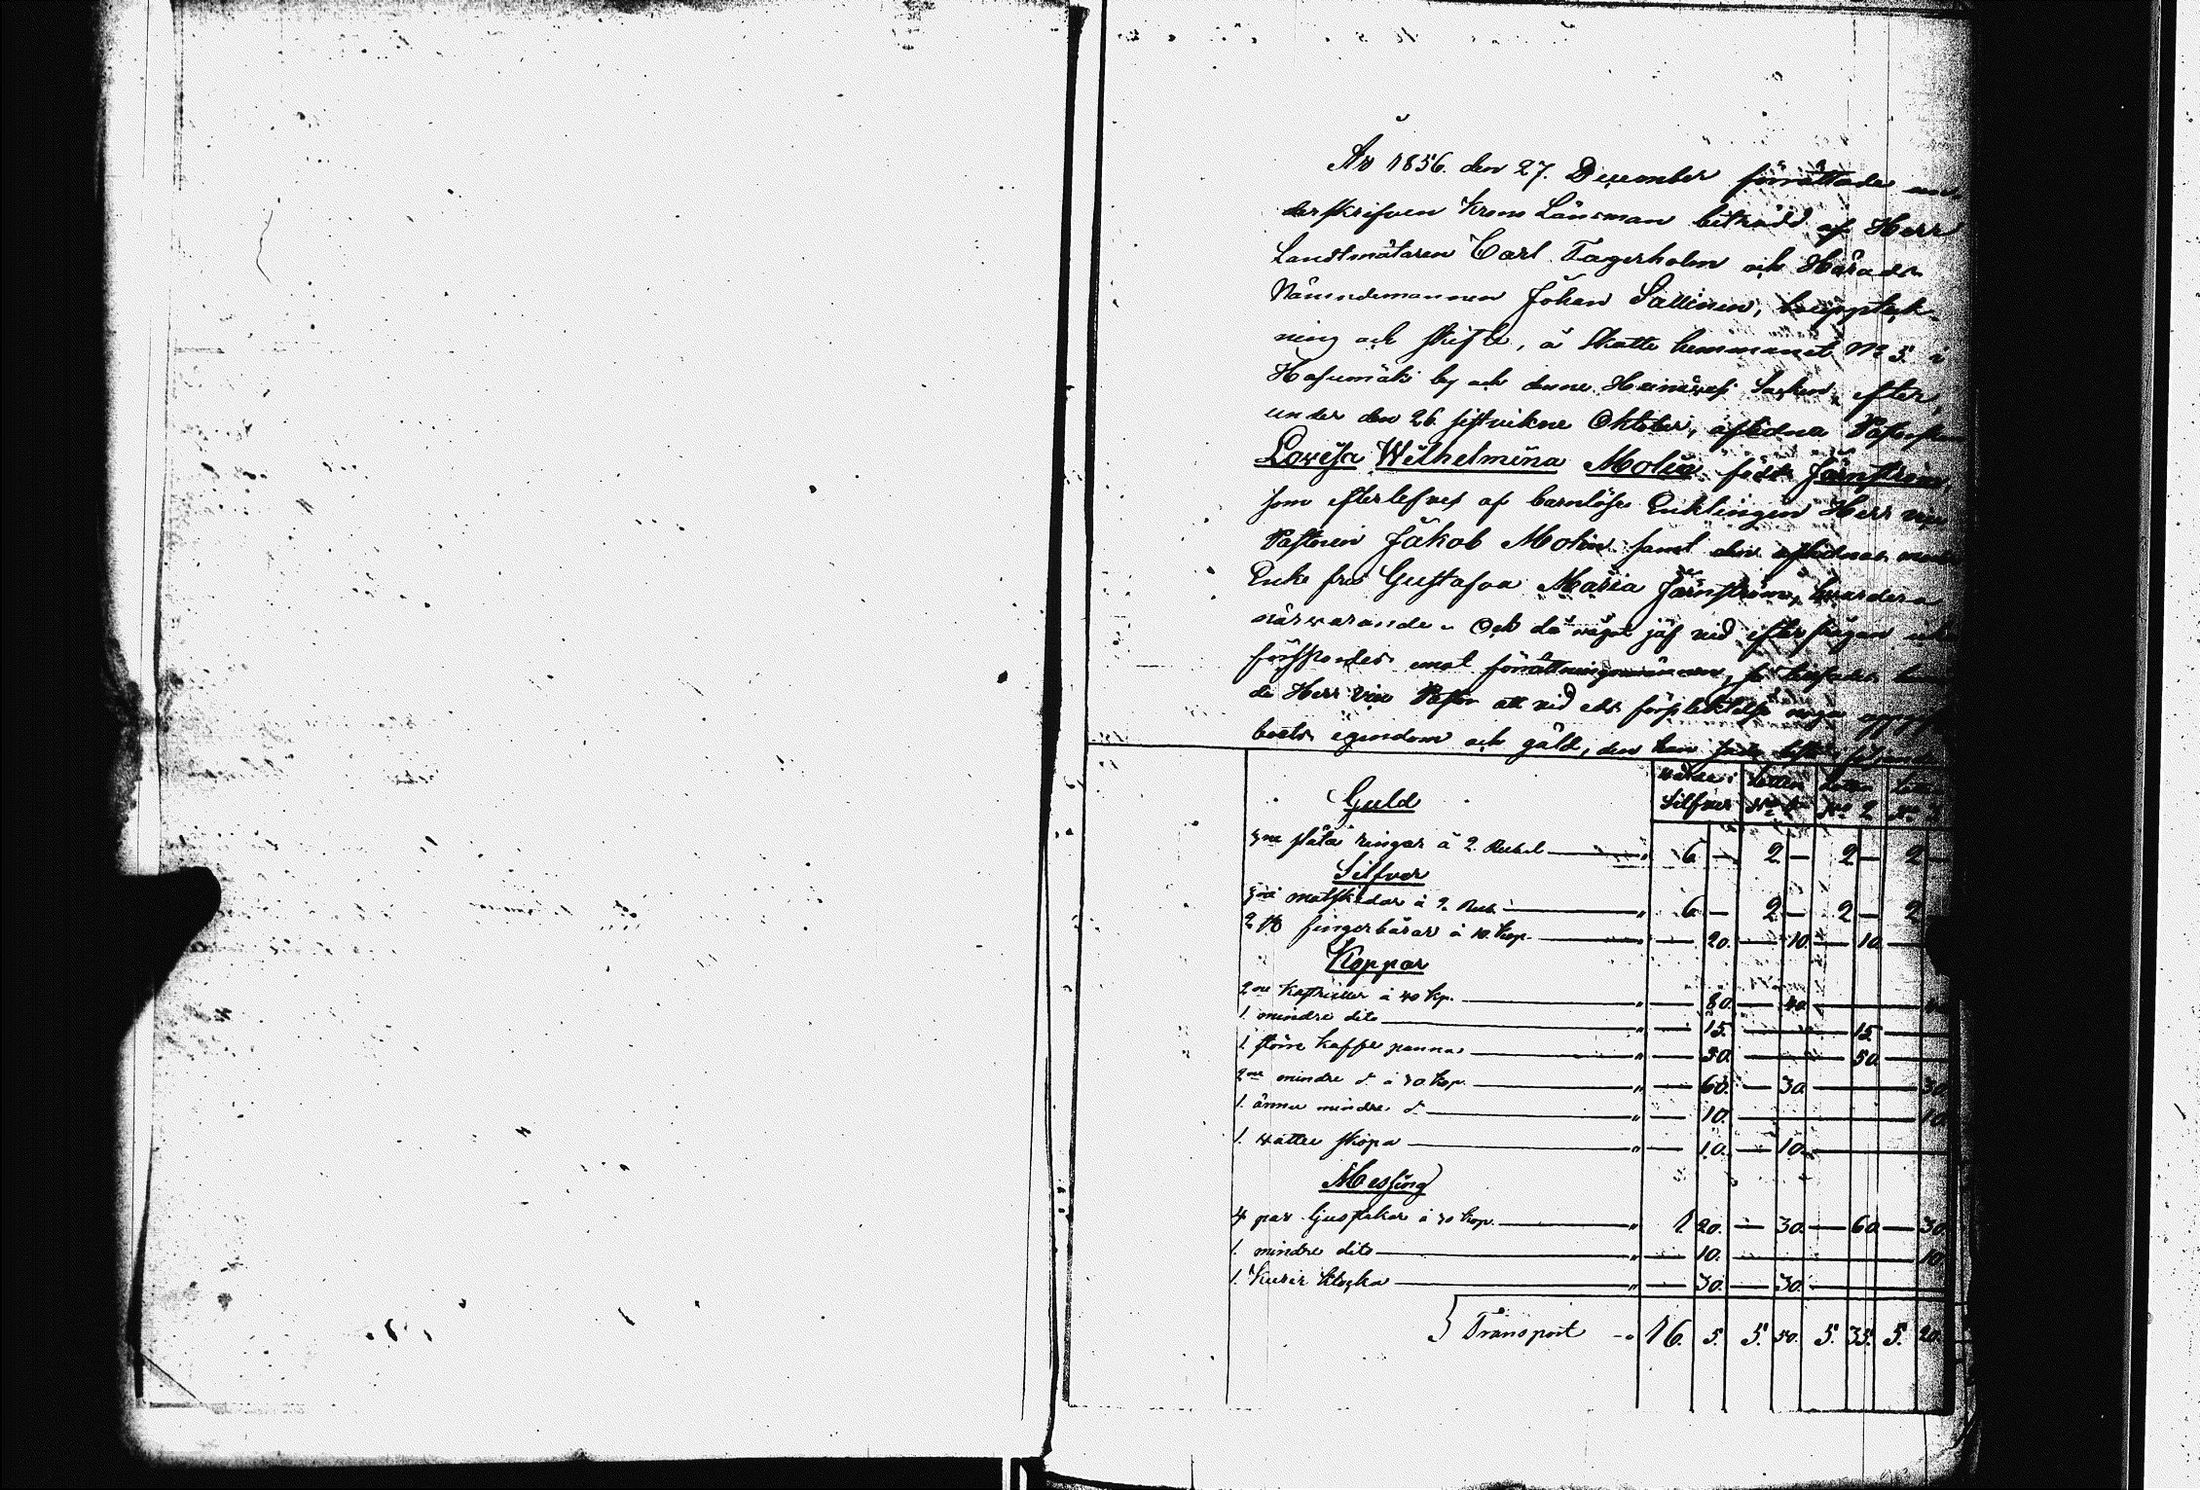 År 1856. den 27. December förrättade un-
derskrifven Krono Länsman biträdd af Herr
Landtmätaren Carl Fagerholm och Härads-
Nämndemannen Johan Sallinen, bouppteck-
ning och skifte, å Skatte hemmanet No 5. i
by och denne Heinäwesi Socken, efter,
under den 26 sistvikne Oktober, aflidna
Lovisa Wilhelmina Molin född Järnström,
som efterlefves af barnlöse Enklingen Herr vice
Pastoren Jakob Molin samt den aflidnas
Enke fru Gustafva Maria Järnström, hvardera
närvarande. Och då något jäf vid efterfrågan icke
förspordes emot förrättningsmännen, så
de Herr vice Pastor att vid eds förpliktelse noga uppgifva
boets egendom och gäld, den han
Värde i Lotten Lotten
Guld Silfver No 1 No 2
3ne släta ringar à 2 Rubel " 6 — 2 — 2 — 2 —
Silfver
3ne matskedar à 2 Rub. " 6 — 2 — 2 — 2
2 st fingerbårar à 10. Kop. " — 20. — 10. — 10. —
Koppar
2ne Kastruller à 40 Kp. " — 80. — 40.
1. mindre dito " — 15. — 15.
1. större kaffe panna " — 50. — 50.
2ne mindre d:o à 30. Kop. " — 60. — 30. — 30.
1. ännu mindre d:o " — 10. — 10.
1. vatten skopa " — 10. — 10.
Messing
4 par ljusstakar à 30 Kop. " 1 20. — 30. — 60. — 30.
1. mindre dito " — 10. — 10.
1. Kurir klocka " — 30. — 30.
Transport " 16. 5. 5. 50. 5. 35. 5. 20.